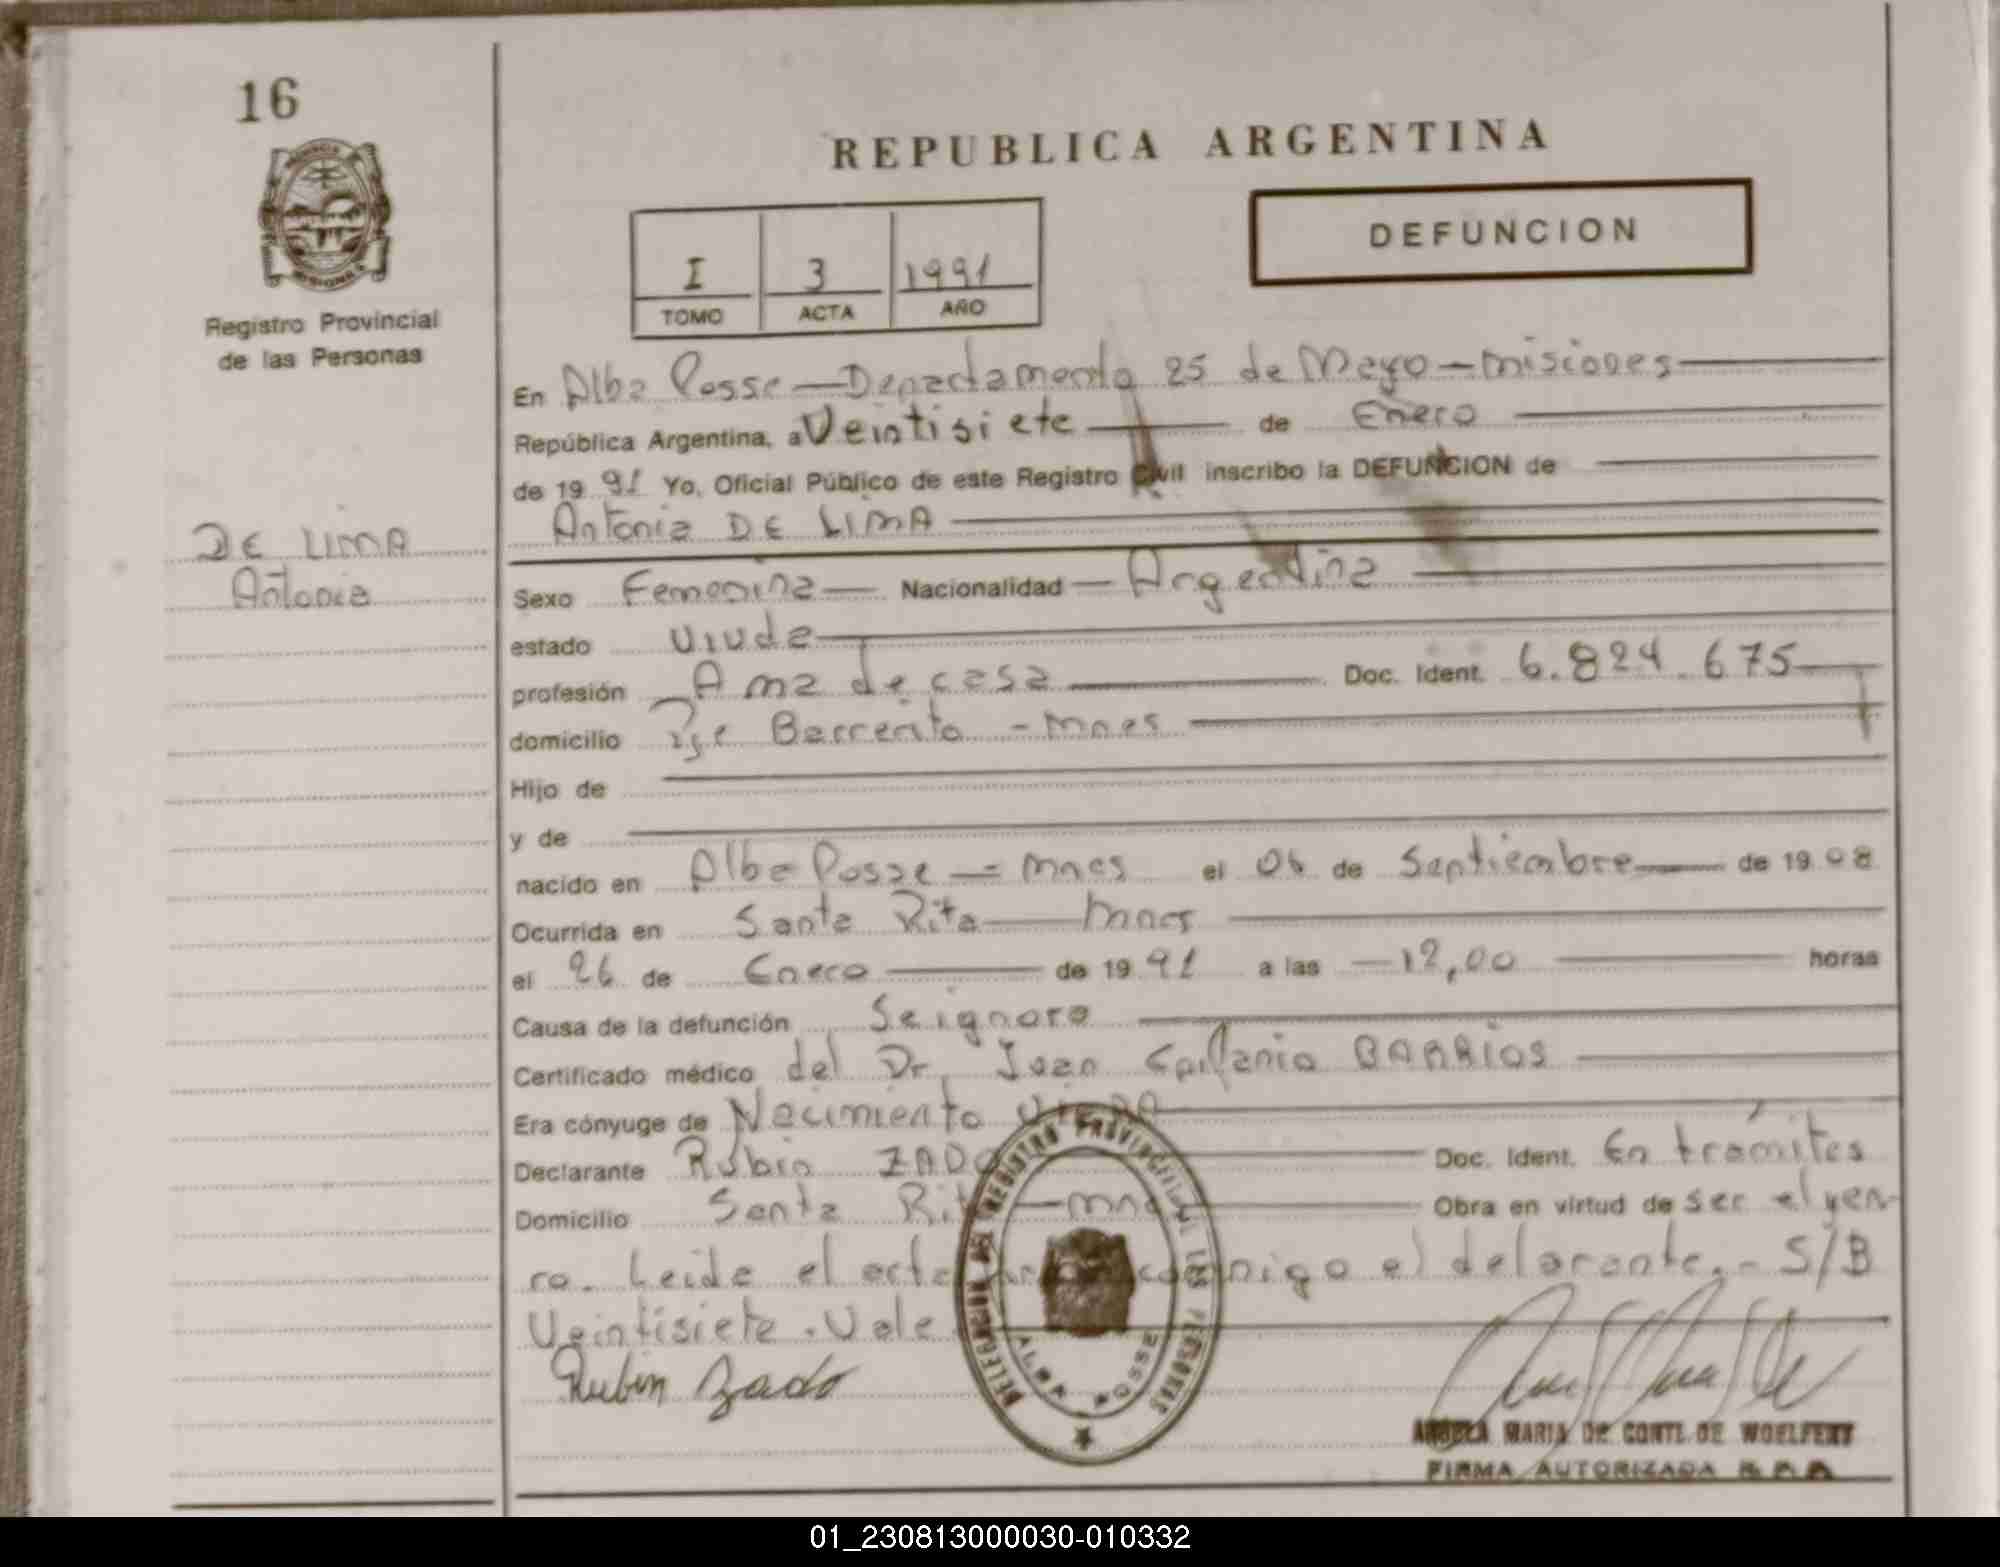 16
REPUBLICA ARGENTINA
DEFUNCION
I 3 1991
TOMO ACTA AÑO
Registro Provincial
de las Personas
En Alba Posse — Departamento 25 de Mayo — Misiones
República Argentina, a Veintisiete de Enero
de 19 91 Yo, Oficial Público de este Registro Civil inscribo la DEFUNCION de
Antonia DE LIMA
DE LIMA
Antonia
Sexo Femenina — Nacionalidad — Argentina
estado Viuda
profesión Ama de casa Doc. Ident. 6.824.675
domicilio Pje Barrerito - Mnes
Hijo de
y de
nacido en Alba Posse — Mnes el 06 de Septiembre de 19 08
Ocurrida en Santa Rita — Mnes
el 26 de Enero de 19 91 a las — 12,00 horas
Causa de la defunción Se ignora
Certificado médico del Dr. Juan Epifanio BARRIOS
Era cónyuge de Nacimiento
Declarante Rubin ZADO Doc. Ident. En trámites
Domicilio Santa Rita — Mnes Obra en virtud de ser el yer-
ro. Leida el acta conmigo el delarante. - S/B
Veintisiete. Vale
Rubin Zado
DELEGACION DEL REGISTRO PROVINCIAL DE LAS PERSONAS
ALBA POSSE
ANGELA MARIA DE CONTI DE WOELFERT
FIRMA AUTORIZADA
01_230813000030-010332